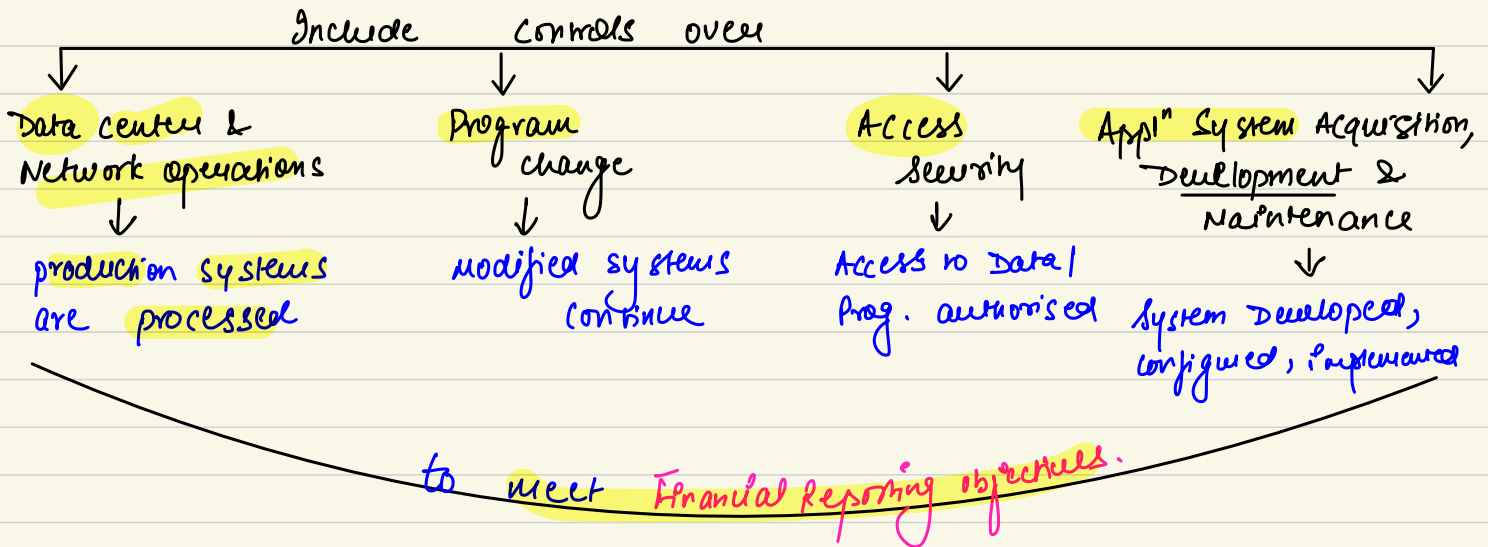 Include controls over
Data center &
Network operations
↓
production systems
are processed
Program
change
↓
Modified systems
continue
Access
Security
↓
Access to Data/
Prog. authorised
Applⁿ System Acquisition,
Development &
Maintenance
↓
System Developed,
configured, implemented
to meet Financial Reporting objectives.